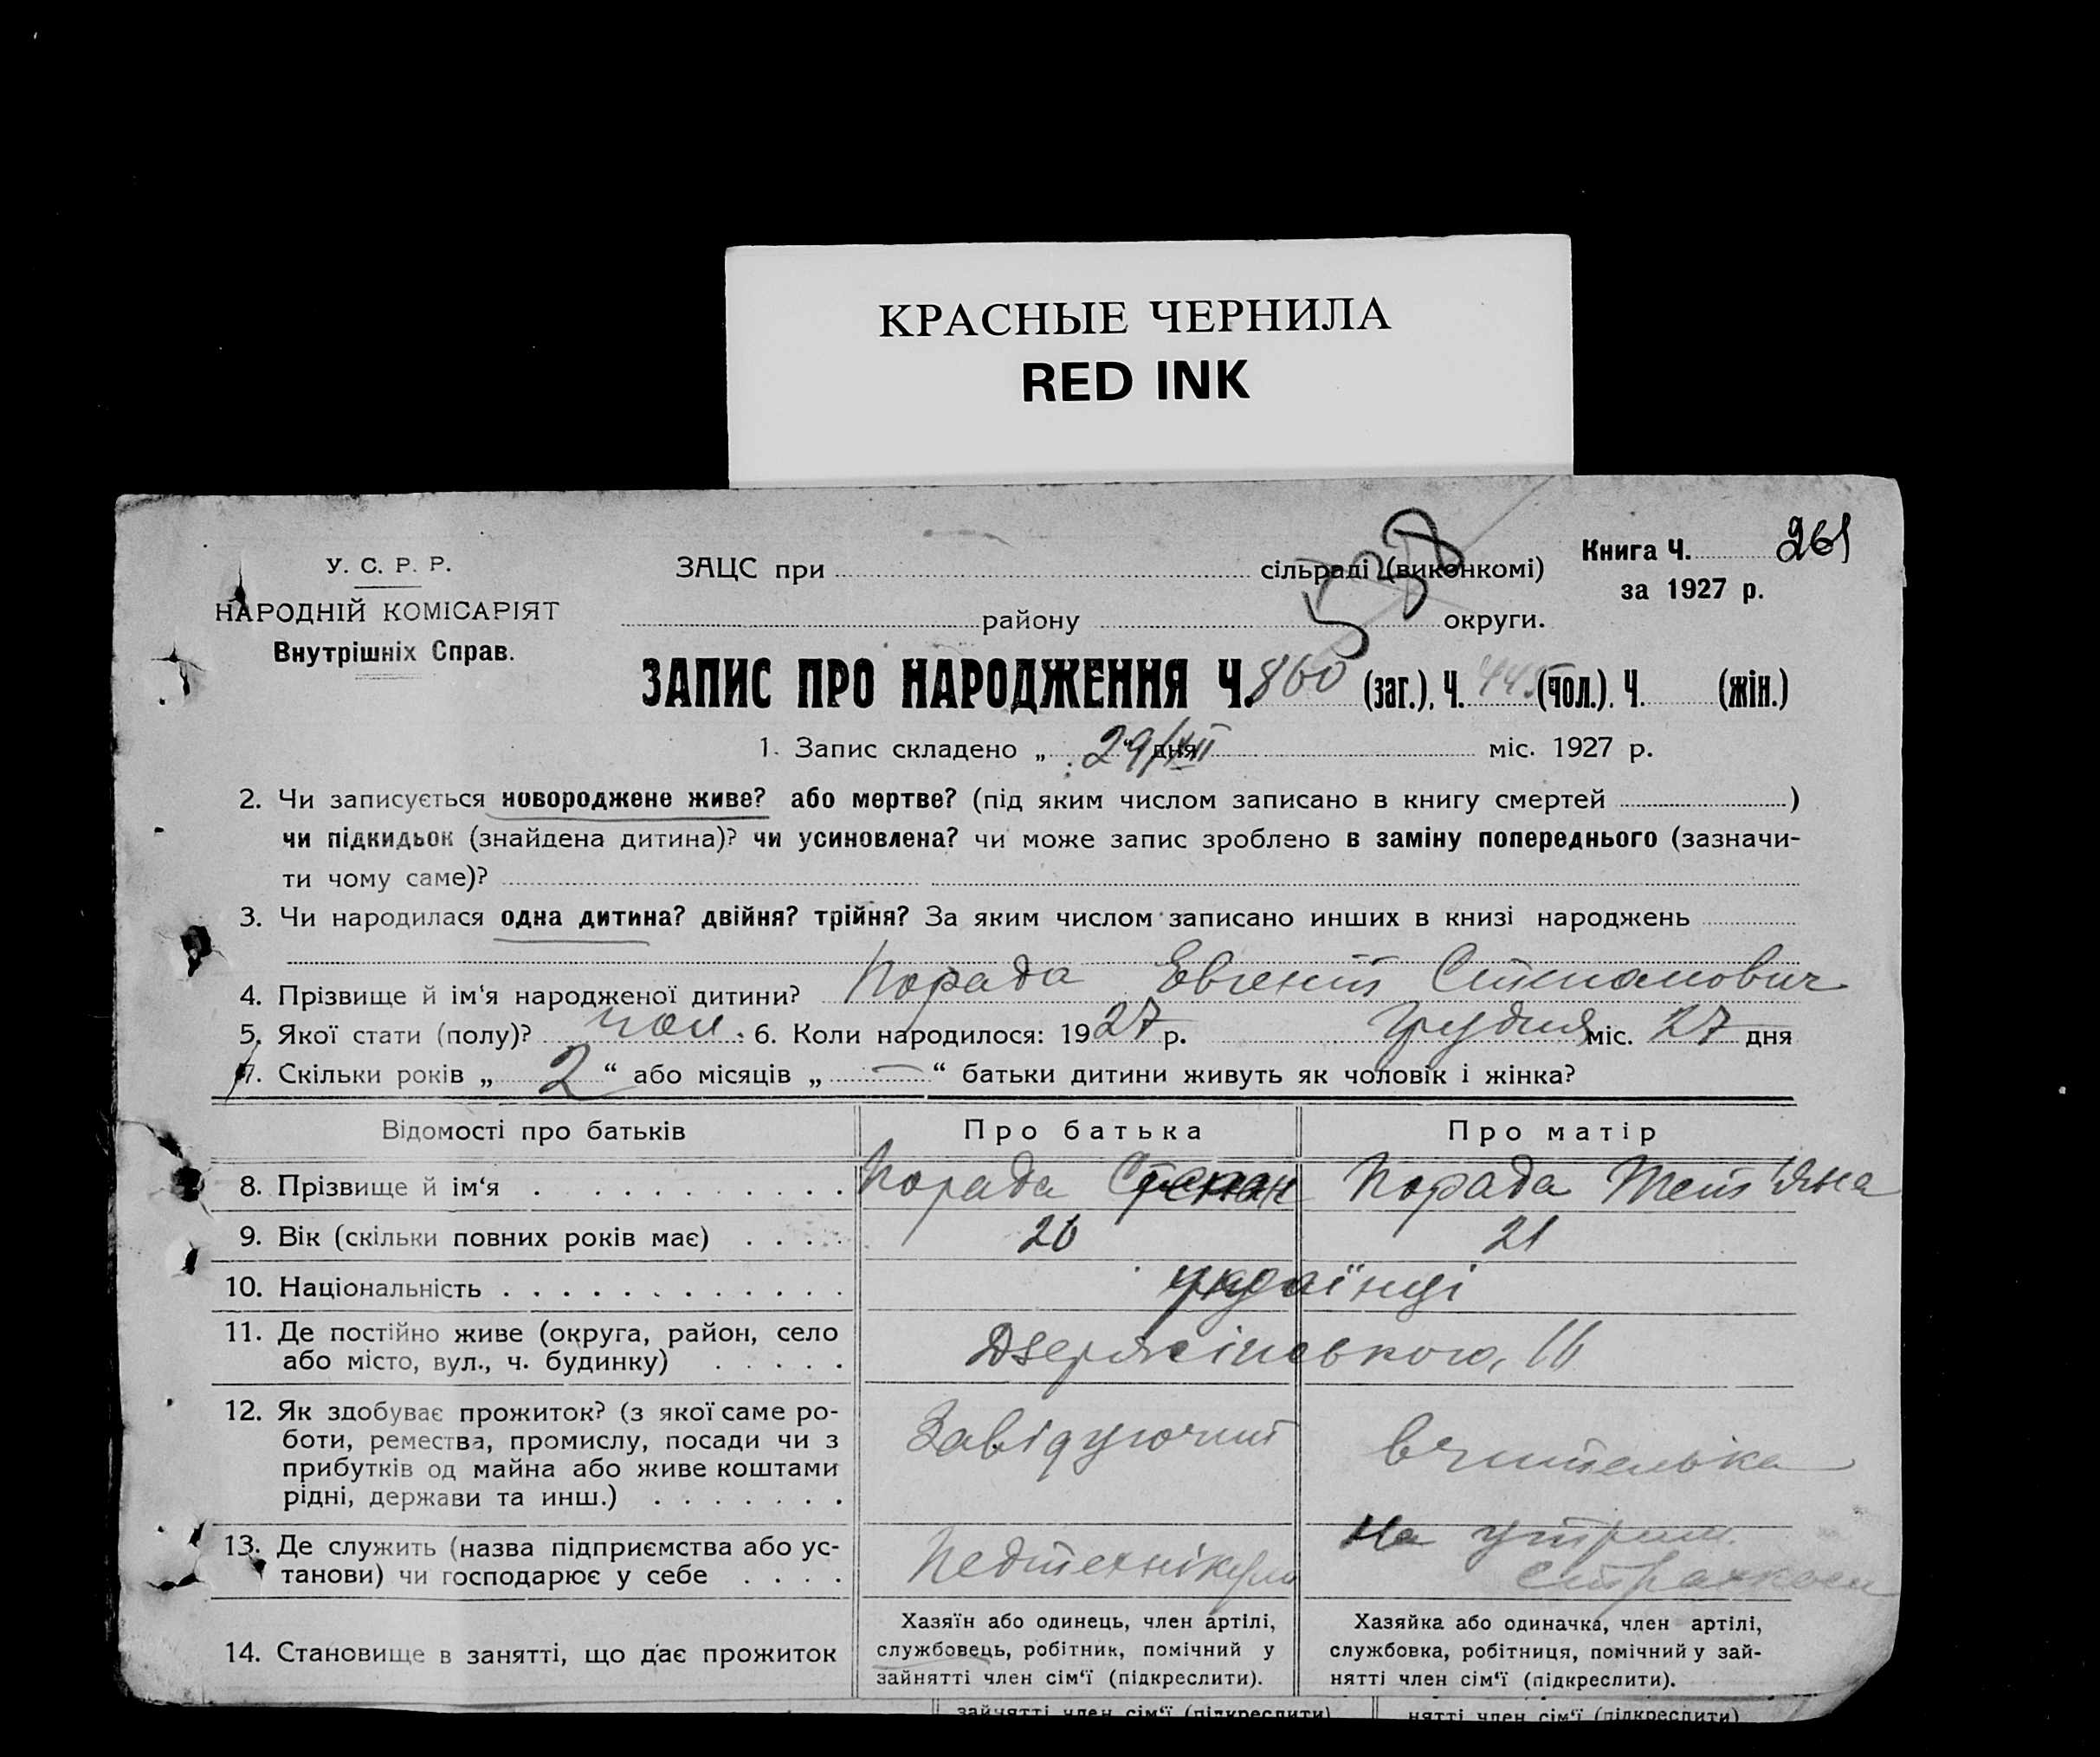 КРАСНЫЕ ЧЕРНИЛА
RED INK
У. С. Р. Р.
НАРОДНІЙ КОМІСАРІЯТ
Внутрішніх Справ.
ЗАЦС при сільраді (виконкомі)
району округи.
538
Книга Ч. 261
за 1927 р.
ЗАПИС ПРО НАРОДЖЕННЯ Ч. 860 (заг.), Ч. (чол.), Ч. (жін.)
1. Запис складено „ 29/XII “ дня міс. 1927 р.
2. Чи записується новороджене живе? або мертве? (під яким числом записано в книгу смертей )
чи підкидьок (знайдена дитина)? чи усиновлена? чи може запис зроблено в заміну попереднього (зазначи-
ти чому саме)?
3. Чи народилася одна дитина? двійня? трійня? За яким числом записано инших в книзі народжень
4. Прізвище й ім‘я народженої дитини? Порада Евгеній Степанович
5. Якої стати (полу)? чол. 6. Коли народилося: 1927 р. Грудня міс. 27 дня
7. Скільки років „ 2 “ або місяців „ — “ батьки дитини живуть як чоловік і жінка?
Відомості про батьків Про батька Про матір
8. Прізвище й ім‘я Порада Степан Порада Тет‘яна
9. Вік (скільки повних років має) 26 21
10. Національність українці
11. Де постійно живе (округа, район, село
або місто, вул., ч. будинку) Дзержінського, 16
12. Як здобуває прожиток? (з якої саме ро-
боти, ремества, промислу, посади чи з
прибутків од майна або живе коштами
рідні, держави та инш.) Завідуючий вчителька
13. Де служить (назва підприємства або ус-
танови) чи господарює у себе Педтехнікум На утрим.
14. Становище в занятті, що дає прожиток
Хазяїн або одинець, член артілі,
службовець, робітник, помічний у
зайнятті член сім‘ї (підкреслити).
Хазяйка або одиначка, член артілі,
службовка, робітниця, помічний у зай-
нятті член сім‘ї (підкреслити).
зайнятті член сім‘ї (підкреслити) нятті член сім‘ї (підкреслити)